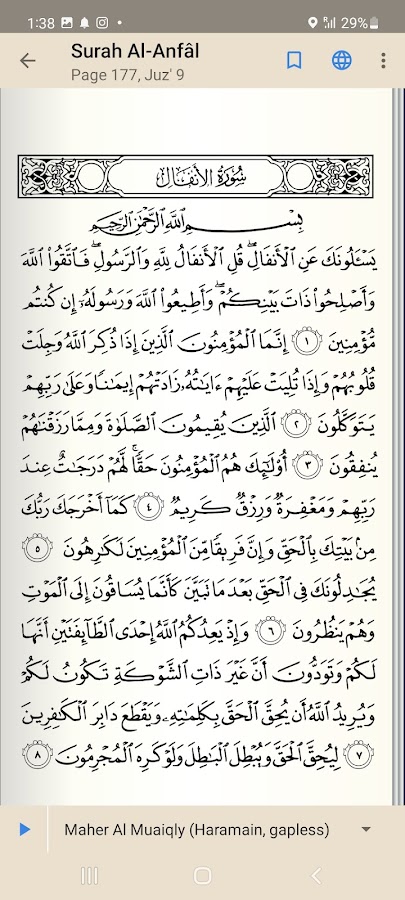 1:38 29%
Surah Al-Anfâl
Page 177, Juz' 9
سُورَةُ الأَنفَالِ
بِسْمِ ٱللَّهِ ٱلرَّحْمَٰنِ ٱلرَّحِيمِ
يَسْـَٔلُونَكَ عَنِ ٱلْأَنفَالِ ۖ قُلِ ٱلْأَنفَالُ لِلَّهِ وَٱلرَّسُولِ ۖ فَٱتَّقُوا۟ ٱللَّهَ
وَأَصْلِحُوا۟ ذَاتَ بَيْنِكُمْ ۖ وَأَطِيعُوا۟ ٱللَّهَ وَرَسُولَهُۥٓ إِن كُنتُم
مُّؤْمِنِينَ ١ إِنَّمَا ٱلْمُؤْمِنُونَ ٱلَّذِينَ إِذَا ذُكِرَ ٱللَّهُ وَجِلَتْ
قُلُوبُهُمْ وَإِذَا تُلِيَتْ عَلَيْهِمْ ءَايَٰتُهُۥ زَادَتْهُمْ إِيمَٰنًا وَعَلَىٰ رَبِّهِمْ
يَتَوَكَّلُونَ ٢ ٱلَّذِينَ يُقِيمُونَ ٱلصَّلَوٰةَ وَمِمَّا رَزَقْنَٰهُمْ
يُنفِقُونَ ٣ أُو۟لَٰٓئِكَ هُمُ ٱلْمُؤْمِنُونَ حَقًّا ۚ لَّهُمْ دَرَجَٰتٌ عِندَ
رَبِّهِمْ وَمَغْفِرَةٌ وَرِزْقٌ كَرِيمٌ ٤ كَمَآ أَخْرَجَكَ رَبُّكَ
مِنۢ بَيْتِكَ بِٱلْحَقِّ وَإِنَّ فَرِيقًا مِّنَ ٱلْمُؤْمِنِينَ لَكَٰرِهُونَ ٥
يُجَٰدِلُونَكَ فِى ٱلْحَقِّ بَعْدَ مَا تَبَيَّنَ كَأَنَّمَا يُسَاقُونَ إِلَى ٱلْمَوْتِ
وَهُمْ يَنظُرُونَ ٦ وَإِذْ يَعِدُكُمُ ٱللَّهُ إِحْدَى ٱلطَّآئِفَتَيْنِ أَنَّهَا
لَكُمْ وَتَوَدُّونَ أَنَّ غَيْرَ ذَاتِ ٱلشَّوْكَةِ تَكُونُ لَكُمْ
وَيُرِيدُ ٱللَّهُ أَن يُحِقَّ ٱلْحَقَّ بِكَلِمَٰتِهِۦ وَيَقْطَعَ دَابِرَ ٱلْكَٰفِرِينَ
٧ لِيُحِقَّ ٱلْحَقَّ وَيُبْطِلَ ٱلْبَٰطِلَ وَلَوْ كَرِهَ ٱلْمُجْرِمُونَ ٨
Maher Al Muaiqly (Haramain, gapless)